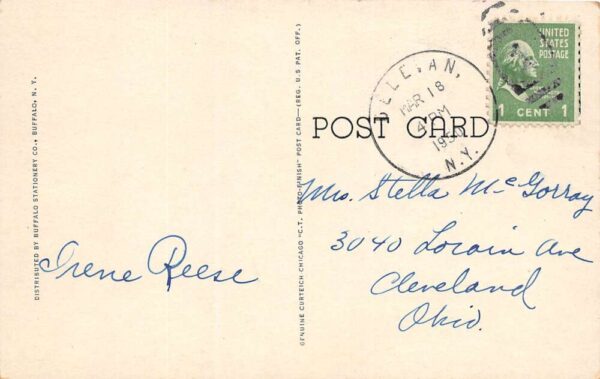 DISTRIBUTED BY BUFFALO STATIONERY CO., BUFFALO, N. Y.
Irene Reese
GENUINE CURTEICH-CHICAGO "C.T. PHOTO-FINISH" POST CARD—(REG. U.S. PAT. OFF.)
POST CARD
MAR 18
PM
N.Y.
UNITED
STATES
POSTAGE
1 CENT 1
Mrs. Stella McGorray
3040 Lorain Ave
Cleveland
Ohio.